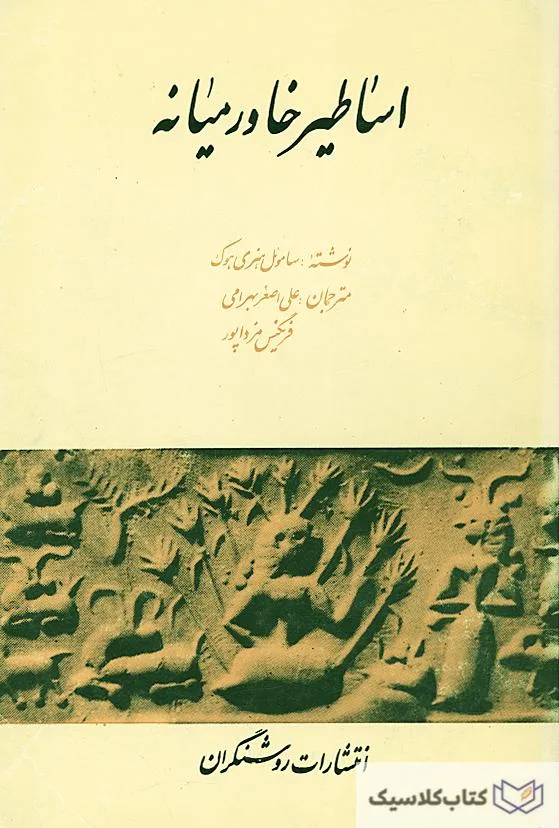 اساطیر خاورمیانه
نوشتهٔ : ساموئل هنری هوک
مترجمان : علی اصغر بهرامی
فرنگیس مزداپور
انتشارات روشنگران
کتاب کلاسیک